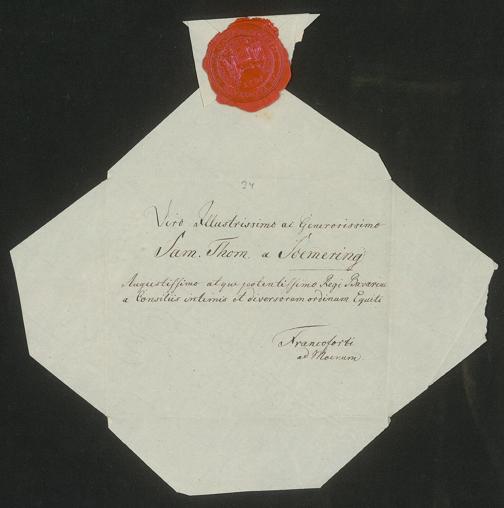 24
Viro Illustrissimo ac Generosissimo
Sam. Thom. a Soemering
Augustissimo atque potentissimo Regi Bavariae
a Consiliis internis et diversorum ordinum Equiti
Francoforti
ad Moenum.